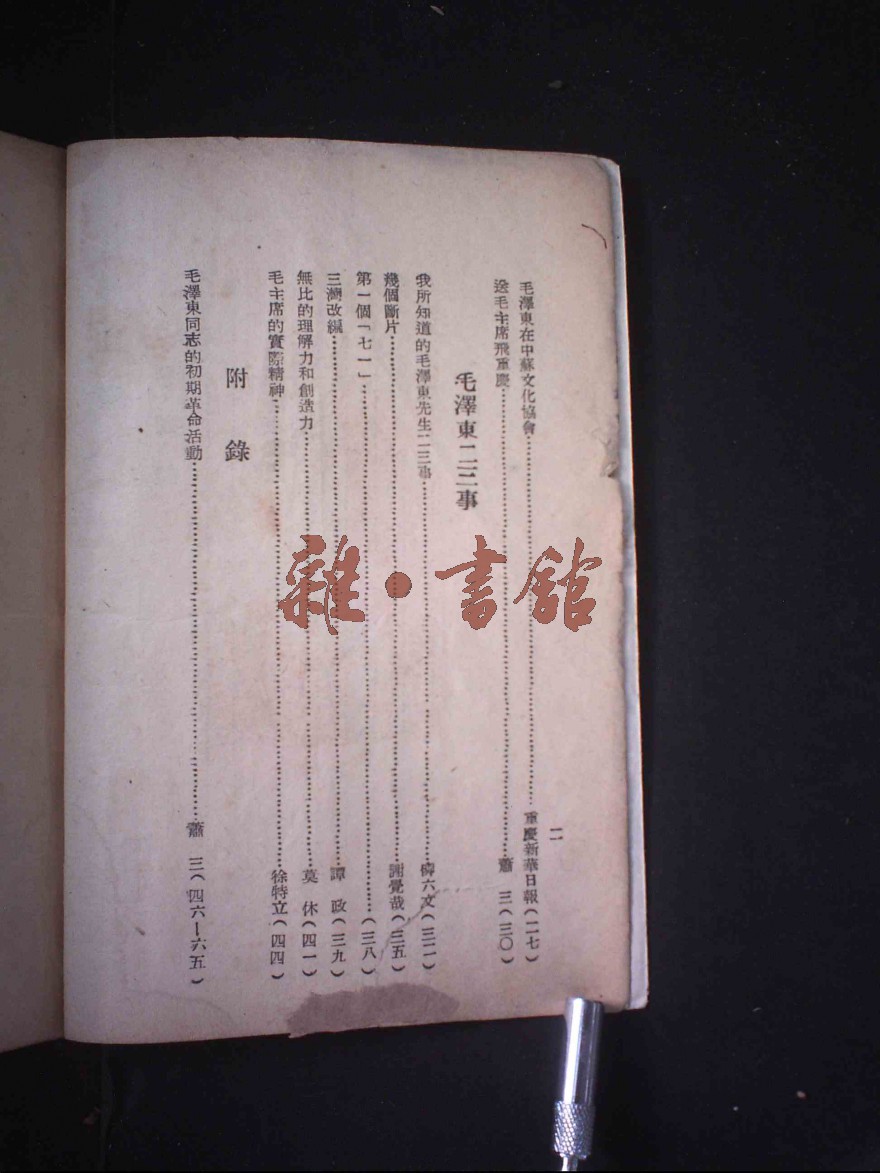 二
毛澤東在中蘇文化協會……重慶新華日報（二七）
送毛主席飛重慶……蕭　三（三〇）
毛澤東二三事
我所知道的毛澤東先生二三事……六文（三二）
幾個斷片……謝覺哉（三五）
第一個「七一」……（三八）
三灣改編……譚　政（三九）
無比的理解力和創造力……莫　休（四一）
毛主席的實際精神……徐特立（四四）
附　錄
毛澤東同志的初期革命活動……蕭　三（四六—六五）
雜·書館